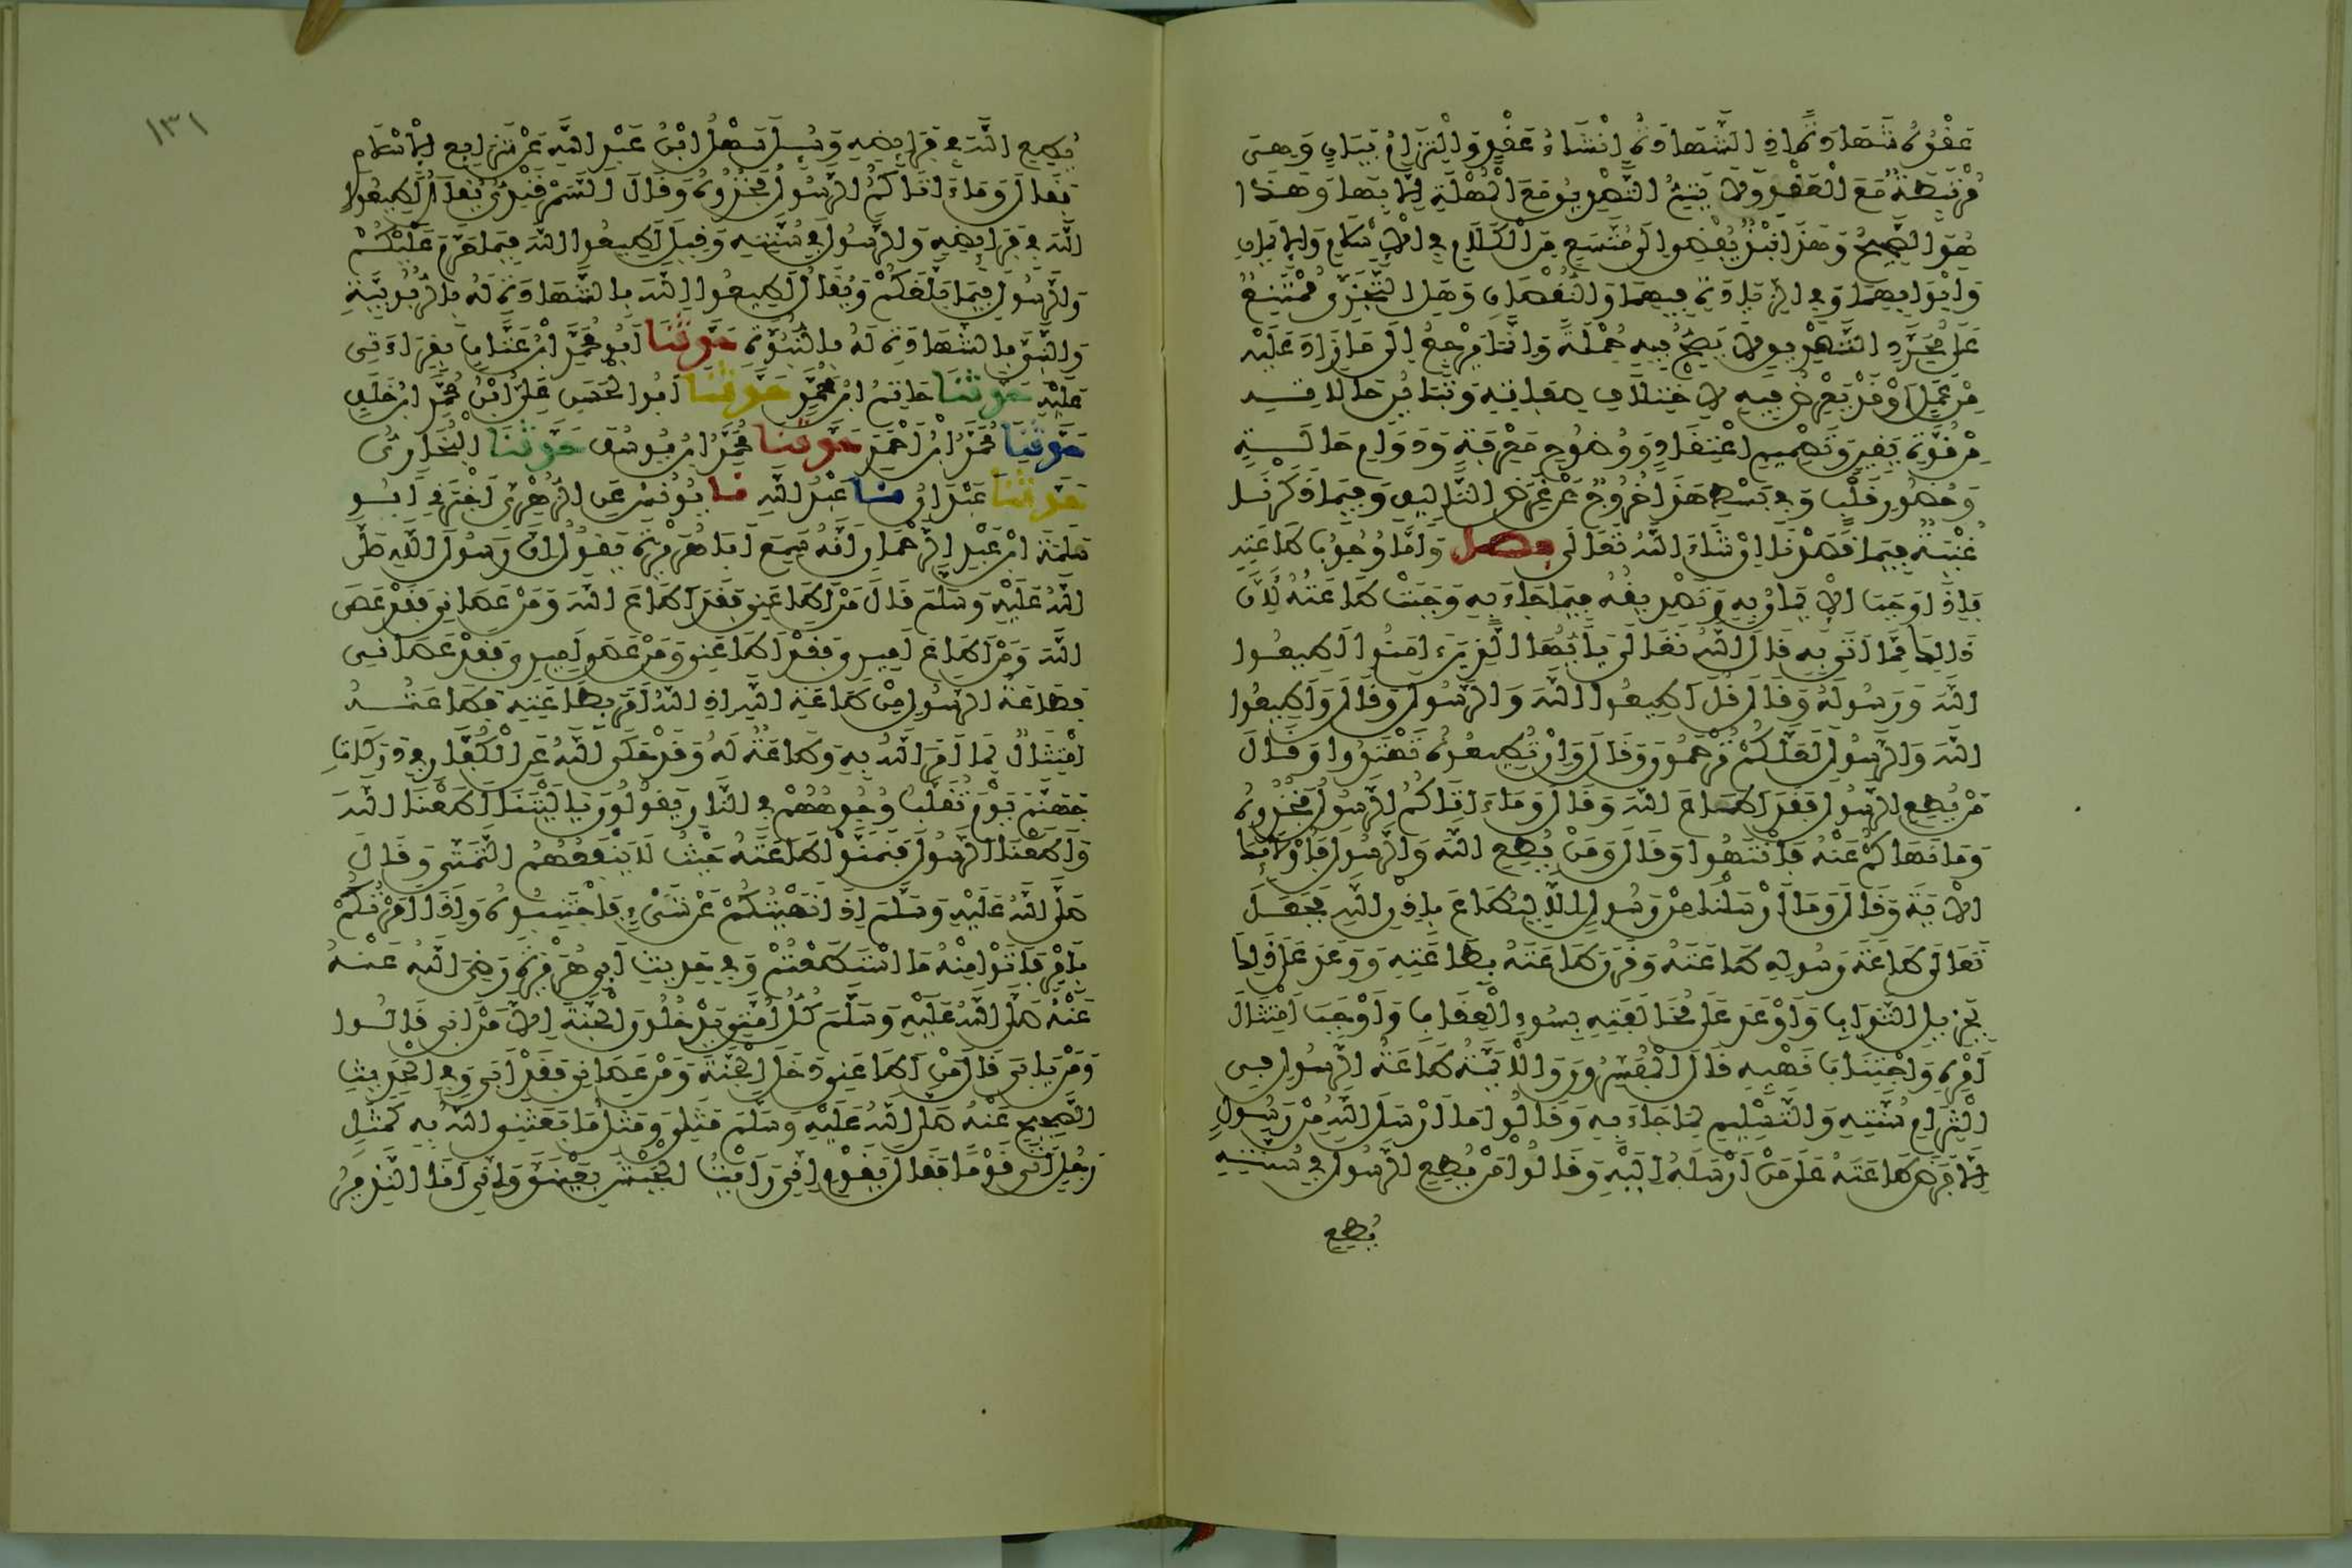 عَقْدُهُ شَهَادَةً إِذِ الشَّهَادَةُ إِنْشَاءُ عَقْدٍ وَالْتِزَامُ إِيمَانٍ وَهِيَ
مُرْتَبِطَةٌ مَعَ الْعَقْدِ وَلَا يَتِمُّ التَّصْدِيقُ مَعَ الْمُهْلَةِ إِلَّا بِهَا وَهَذَا
هُوَ الصَّحِيحُ وَهَذَا نَبْذٌ يُفْضِي إِلَى مُتَّسَعٍ مِنَ الْكَلَامِ فِي الْإِسْلَامِ وَالْإِيمَانِ
وَأَبْوَابِهِمَا وَفِي الزِّيَادَةِ فِيهِمَا وَالنُّقْصَانِ وَهَلِ التَّجَزِّي مُمْتَنِعٌ
عَلَى مُجَرَّدِ التَّصْدِيقِ لَا يَصِحُّ فِيهِ جُمْلَةً وَإِنَّمَا يَرْجِعُ إِلَى مَا زَادَ عَلَيْهِ
مِنْ عَمَلٍ أَوْ قَدْ يَعْرِضُ فِيهِ لِاخْتِلَافِ صِفَاتِهِ وَتَبَايُنِ حَالَاتِهِ
مِنْ قُوَّةِ يَقِينٍ وَتَصْمِيمِ اعْتِقَادٍ وَوُضُوحِ مَعْرِفَةٍ وَدَوَامِ حَالَةٍ
وَحُضُورِ قَلْبٍ وَفِي بَسْطِ هَذَا خُرُوجٌ عَنْ غَرَضِ التَّأْلِيفِ وَفِيمَا ذَكَرْنَا
غُنْيَةٌ فِيمَا قَصَدْنَا إِنْ شَاءَ اللَّهُ تَعَالَى فصل وَأَمَّا وُجُوبُ طَاعَتِهِ
فَإِذَا وَجَبَ الْإِيمَانُ بِهِ وَتَصْدِيقُهُ فِيمَا جَاءَ بِهِ وَجَبَتْ طَاعَتُهُ لِأَنَّ
ذَلِكَ مِمَّا أَتَى بِهِ قَالَ اللَّهُ تَعَالَى يَا أَيُّهَا الَّذِينَ ءَامَنُوا أَطِيعُوا
اللَّهَ وَرَسُولَهُ وَقَالَ قُلْ أَطِيعُوا اللَّهَ وَالرَّسُولَ وَقَالَ وَأَطِيعُوا
اللَّهَ وَالرَّسُولَ لَعَلَّكُمْ تُرْحَمُونَ وَقَالَ وَإِنْ تُطِيعُوهُ تَهْتَدُوا وَقَالَ
مَنْ يُطِعِ الرَّسُولَ فَقَدْ أَطَاعَ اللَّهَ وَقَالَ وَمَاءَ اتَاكُمُ الرَّسُولُ فَخُذُوهُ
وَمَا نَهَاكُمْ عَنْهُ فَانْتَهُوا وَقَالَ وَمَنْ يُطِعِ اللَّهَ وَالرَّسُولَ فَأُولَئِكَ
الْآيَةَ وَقَالَ وَمَا أَرْسَلْنَا مِنْ رَسُولٍ إِلَّا لِيُطَاعَ بِإِذْنِ اللَّهِ فَجَعَلَ
تَعَالَى طَاعَةَ رَسُولِهِ طَاعَتَهُ وَقَرَنَ طَاعَتَهُ بِطَاعَتِهِ وَوَعَدَ عَلَى ذَلِكَ
بِجَزِيلِ الثَّوَابِ وَأَوْعَدَ عَلَى مُخَالَفَتِهِ بِسُوءِ الْعِقَابِ وَأَوْجَبَ امْتِثَالَ
أَمْرِهِ وَاجْتِنَابَ نَهْيِهِ قَالَ الْمُفَسِّرُونَ وَالْأَئِمَّةُ طَاعَةُ الرَّسُولِ فِي
الْتِزَامِ سُنَّتِهِ وَالتَّسْلِيمِ لِمَا جَاءَ بِهِ وَقَالُوا مَا أَرْسَلَ اللَّهُ مِنْ رَسُولٍ
إِلَّا فَرَضَ طَاعَتَهُ عَلَى مَنْ أَرْسَلَهُ إِلَيْهِ وَقَالُوا مَنْ يُطِعِ الرَّسُولَ فِي سُنَّتِهِ
يُطِعِ
١٣١
يُطِعِ اللَّهَ فِي فَرَائِضِهِ وَسُئِلَ سَهْلُ ابْنُ عَبْدِ اللَّهِ عَنْ شَرَائِعِ الْإِسْلَامِ
فَقَالَ وَمَاءَ اتَاكُمُ الرَّسُولُ فَخُذُوهُ وَقَالَ السَّمَرْقَنْدِيُّ يُقَالُ أَطِيعُوا
اللَّهَ فِي فَرَائِضِهِ وَالرَّسُولَ فِي سُنَّتِهِ وَقِيلَ أَطِيعُوا اللَّهَ فِيمَا حَرَّمَ عَلَيْكُمْ
وَالرَّسُولَ فِيمَا بَلَّغَكُمْ وَيُقَالُ أَطِيعُوا اللَّهَ بِالشَّهَادَةِ لَهُ بِالرُّبُوبِيَّةِ
وَالنَّبِيَّ بِالشَّهَادَةِ لَهُ بِالنُّبُوَّةِ حَدَّثَنَا أَبُو مُحَمَّدِ ابْنُ عَتَّابٍ بِقِرَاءَتِي
عَلَيْهِ حَدَّثَنَا حَاتِمُ ابْنُ مُحَمَّدٍ حَدَّثَنَا أَبُو الْحَسَنِ عَلِيُّ ابْنُ مُحَمَّدِ ابْنِ خَلَفٍ
حَدَّثَنَا مُحَمَّدُ ابْنُ أَحْمَدَ حَدَّثَنَا مُحَمَّدُ ابْنُ يُوسُفَ حَدَّثَنَا الْبُخَارِيُّ
حَدَّثَنَا عَبْدَانُ نا عَبْدُ اللَّهِ نا يُونُسُ عَنِ الزُّهْرِيِّ أَخْبَرَنِي أَبُو
سَلَمَةَ ابْنُ عَبْدِ الرَّحْمَانِ أَنَّهُ سَمِعَ أَبَا هُرَيْرَةَ يَقُولُ إِنَّ رَسُولَ اللَّهِ صَلَّى
اللَّهُ عَلَيْهِ وَسَلَّمَ قَالَ مَنْ أَطَاعَنِي فَقَدْ أَطَاعَ اللَّهَ وَمَنْ عَصَانِي فَقَدْ عَصَى
اللَّهَ وَمَنْ أَطَاعَ أَمِيرِي فَقَدْ أَطَاعَنِي وَمَنْ عَصَى أَمِيرِي فَقَدْ عَصَانِي
فَطَاعَةُ الرَّسُولِ مِنْ طَاعَةِ اللَّهِ إِذِ اللَّهُ أَمَرَ بِطَاعَتِهِ فَطَاعَتُهُ
امْتِثَالٌ لِمَا أَمَرَ اللَّهُ بِهِ وَطَاعَةٌ لَهُ وَقَدْ حَكَى اللَّهُ عَنِ الْكُفَّارِ فِي دَرَكَاتِ
جَهَنَّمَ يَوْمَ تُقَلَّبُ وُجُوهُهُمْ فِي النَّارِ يَقُولُونَ يَا لَيْتَنَا أَطَعْنَا اللَّهَ
وَأَطَعْنَا الرَّسُولَ فَتَمَنَّوْا طَاعَتَهُ حَيْثُ لَا يَنْفَعُهُمُ التَّمَنِّي وَقَالَ
صَلَّى اللَّهُ عَلَيْهِ وَسَلَّمَ إِذَا نَهَيْتُكُمْ عَنْ شَيْءٍ فَاجْتَنِبُوهُ وَإِذَا أَمَرْتُكُمْ
بِأَمْرٍ فَأْتُوا مِنْهُ مَا اسْتَطَعْتُمْ وَفِي حَدِيثِ أَبِي هُرَيْرَةَ رَضِيَ اللَّهُ عَنْهُ
عَنْهُ صَلَّى اللَّهُ عَلَيْهِ وَسَلَّمَ كُلُّ أُمَّتِي يَدْخُلُونَ الْجَنَّةَ إِلَّا مَنْ أَبَى قَالُوا
وَمَنْ يَأْبَى قَالَ مَنْ أَطَاعَنِي دَخَلَ الْجَنَّةَ وَمَنْ عَصَانِي فَقَدْ أَبَى وَفِي الْحَدِيثِ
الصَّحِيحِ عَنْهُ صَلَّى اللَّهُ عَلَيْهِ وَسَلَّمَ مَثَلِي وَمَثَلُ مَا بَعَثَنِي اللَّهُ بِهِ كَمَثَلِ
رَجُلٍ أَتَى قَوْمًا فَقَالَ يَقَوْمِ إِنِّي رَأَيْتُ الْجَيْشَ بِعَيْنَيَّ وَإِنِّي أَنَا النَّذِيرُ